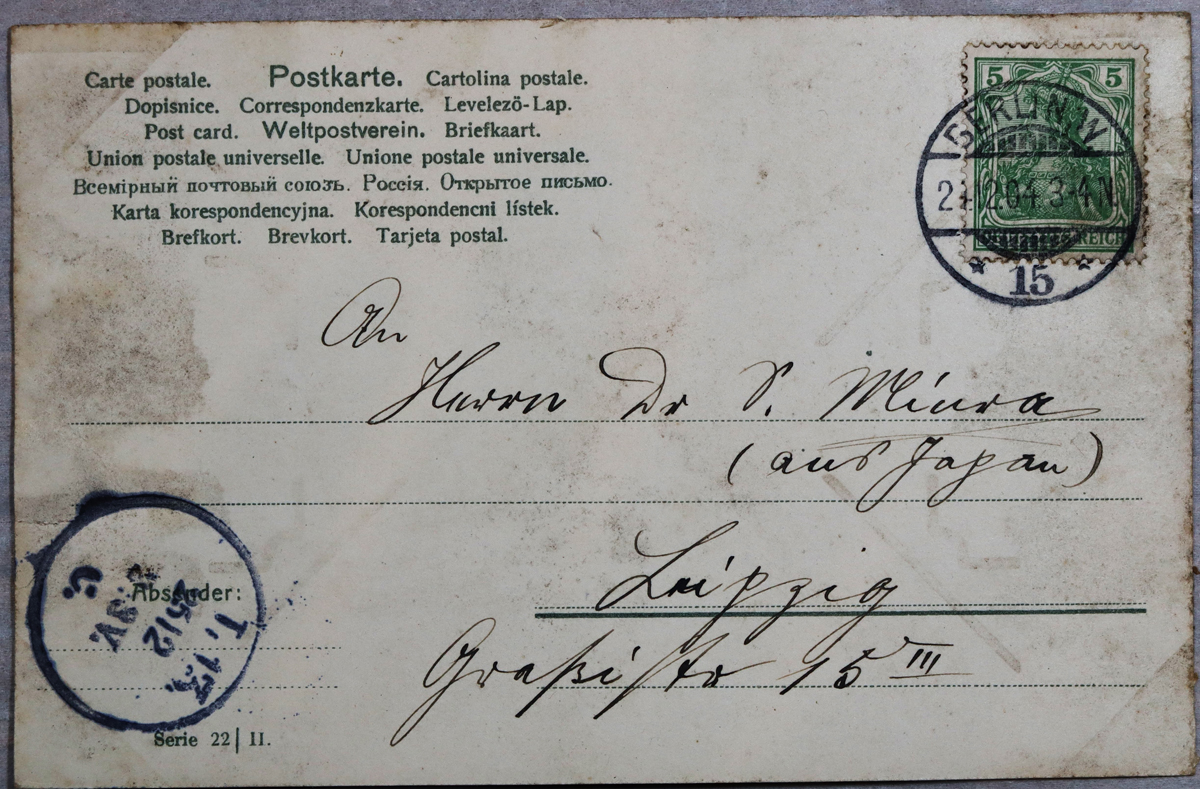 Carte postale. Postkarte. Cartolina postale.
Dopisnice. Correspondenzkarte. Levelező-Lap.
Post card. Weltpostverein. Briefkaart.
Union postale universelle. Unione postale universale.
Всемірный почтовый союзъ. Россія. Открытое письмо.
Karta korespondencyjna. Korespondencni lístek.
Brefkort. Brevkort. Tarjeta postal.
5 5
BERLIN W
12.04. 3-4 N.
REICH
* 15 *
An
Herrn Dr S. Miura
(aus Japan)
Leipzig
Graßistr 15 III
Absender:
T. 17.
25 12
9V.
Serie 22 | 11.